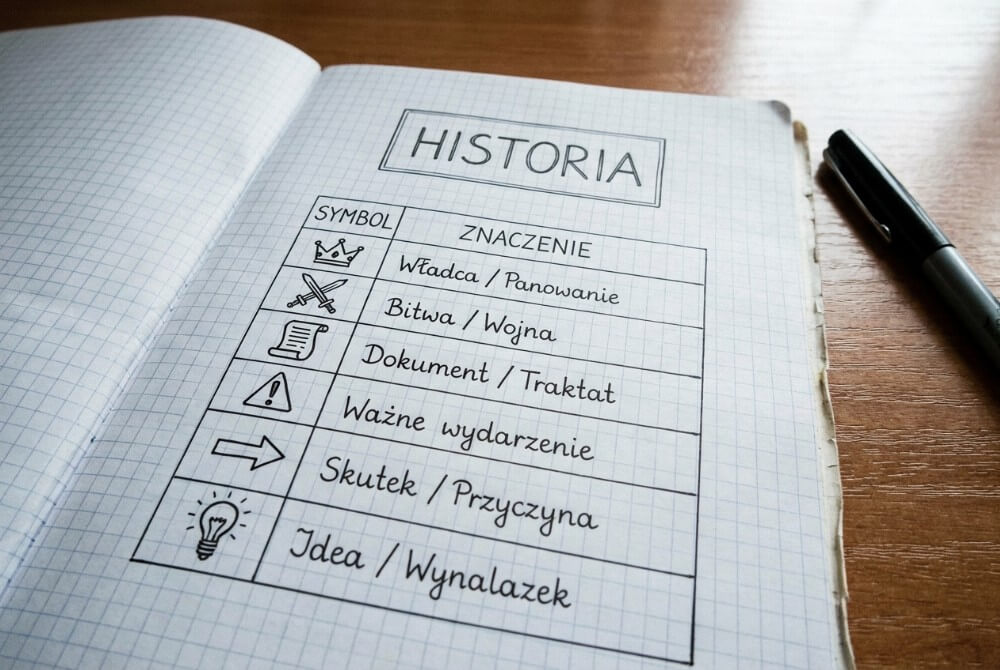 HISTORIA
SYMBOL ZNACZENIE
Władca / Panowanie
Bitwa / Wojna
Dokument / Traktat
Ważne wydarzenie
Skutek / Przyczyna
Idea / Wynalazek